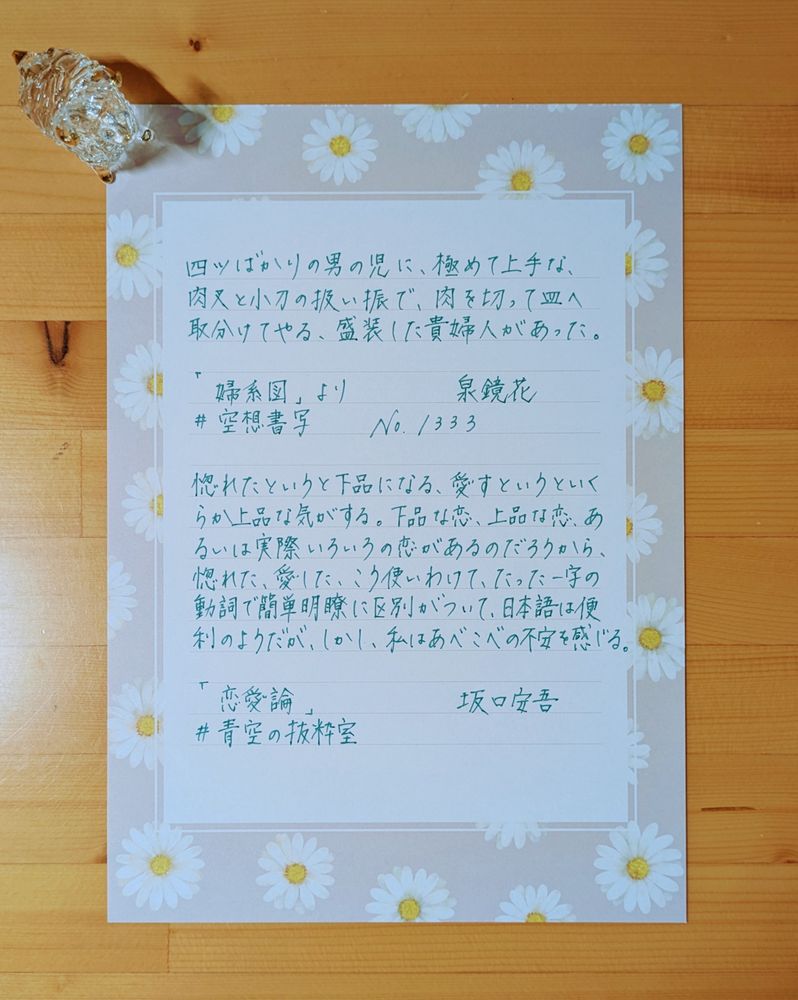 四ツばかりの男の児に、極めて上手な、
肉叉と小刀の扱い振で、肉を切って皿へ
取分けてやる、盛装した貴婦人があった。
「婦系図」より 泉鏡花
#空想書写 No.1333
惚れたというと下品になる、愛すというといく
らか上品な気がする。下品な恋、上品な恋、あ
るいは実際いろいろの恋があるのだろうから、
惚れた、愛した、こう使いわけて、たった一字の
動詞で簡単明瞭に区別がついて、日本語は便
利のようだが、しかし、私はあべこべの不安を感じる。
「恋愛論」 坂口安吾
#青空の抜粋室